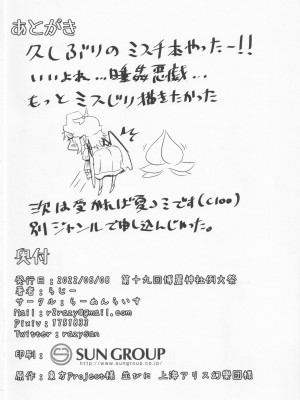 あとがき
久しぶりのミスチ本やったー!!
いいよね…睡姦悪戯…
もっとミスじり描きたかった
次は受かれば夏コミです(C100)
別ジャンルで申し込んじゃった。
奥付
発行日：2022/05/08 第十九回博麗神社例大祭
著者：らじー
サークル：らーめんらいす
Mail：r2razy@gmail.com
Pixiv：1751833
Twitter：razysan
印刷：SUN GROUP
http://www.sungroup.co.jp
原作：東方Project様 並びに 上海アリス幻樂団様